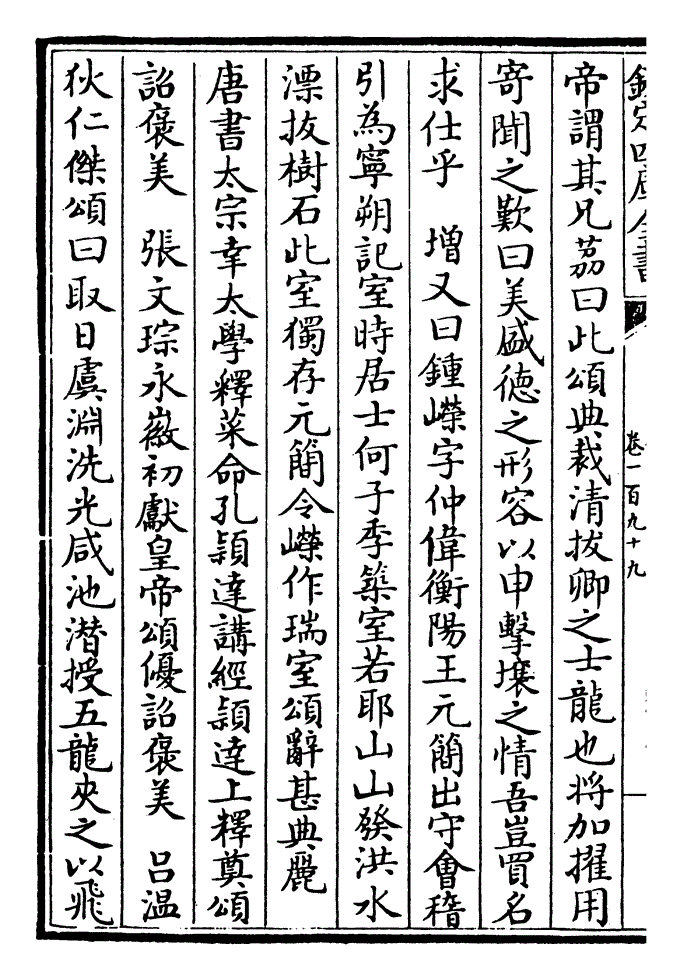 欽定四庫全書
卷一百九十九
帝謂其兄茘曰此頌典裁清拔卿之士龍也將加擢用
寄聞之歎曰美盛徳之形容以申擊壤之情吾豈買名
求仕乎　増又曰鍾嶸字仲偉衡陽王元簡出守會稽
引為寧朔記室時居士何子季築室若耶山山發洪水
漂拔樹石此室獨存元簡令嶸作瑞室頌辭甚典麗
唐書太宗幸太學釋菜命孔頴達講經頴達上釋奠頌
詔褒美　張文琮永徽初獻皇帝頌優詔褒美　吕温
狄仁傑頌曰取日虞淵洗光咸池潜授五龍夾之以飛